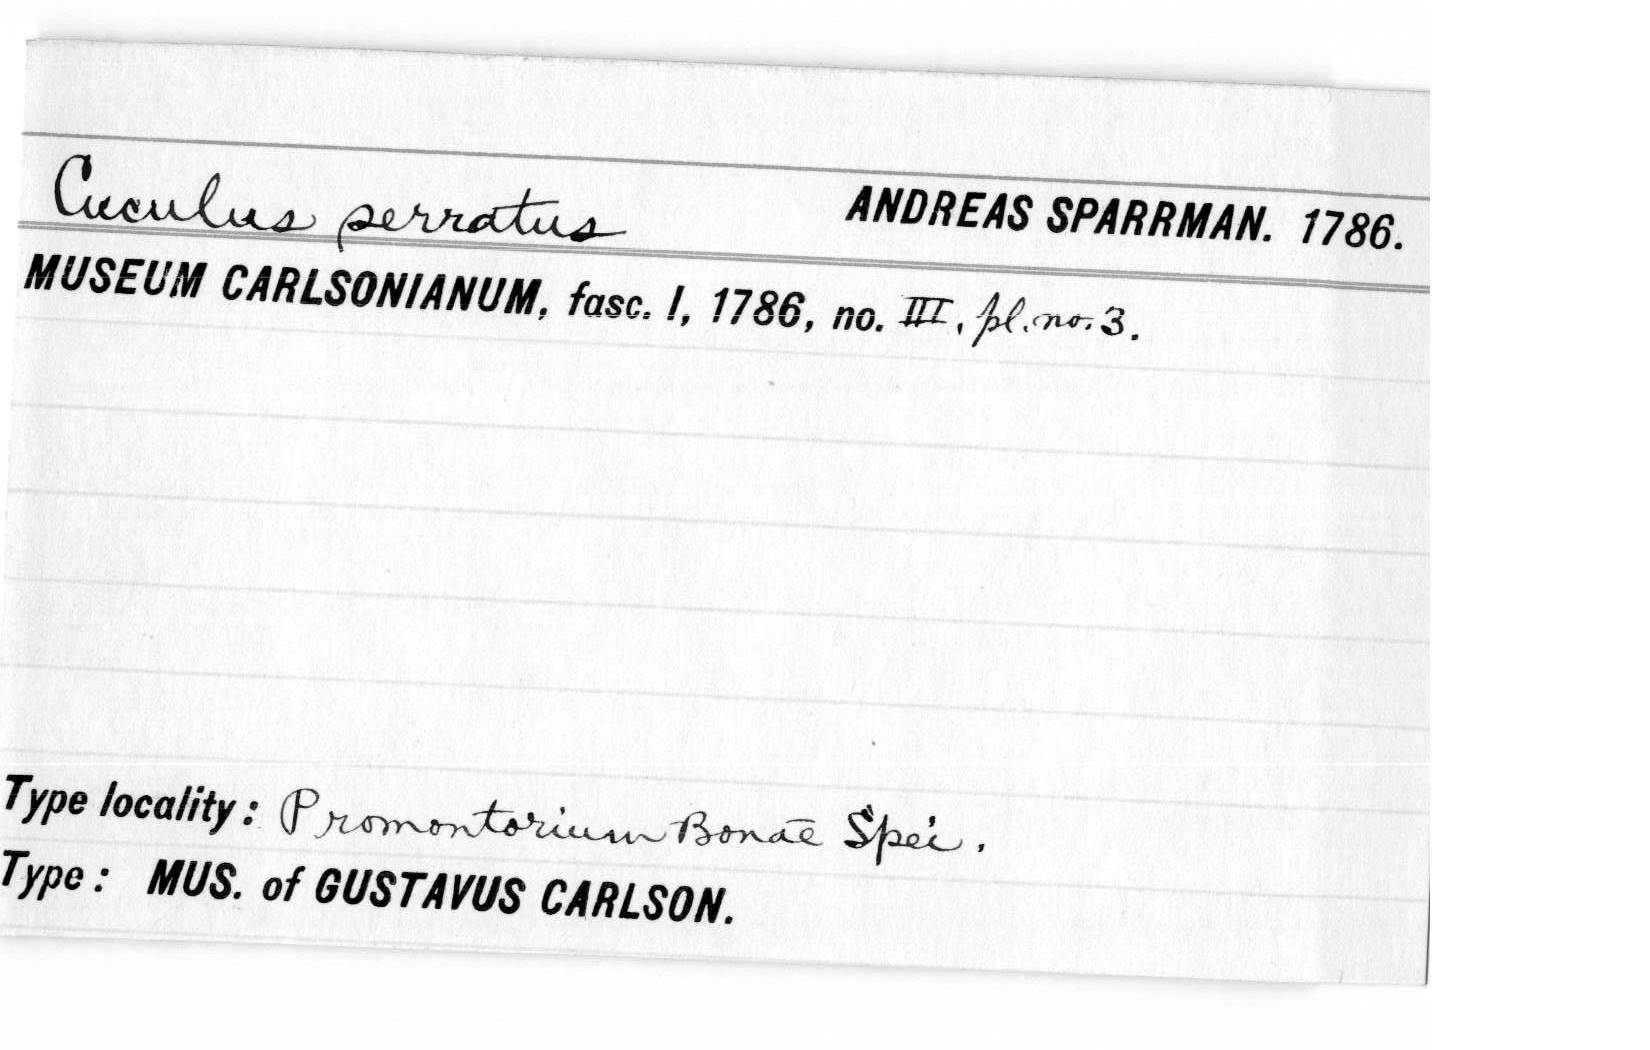 Cuculus serratus ANDREAS SPARRMAN. 1786.
MUSEUM CARLSONIANUM, fasc. I, 1786, no. III, pl. no. 3.
Type locality: Promontorium Bonae Spei.
Type: MUS. of GUSTAVUS CARLSON.